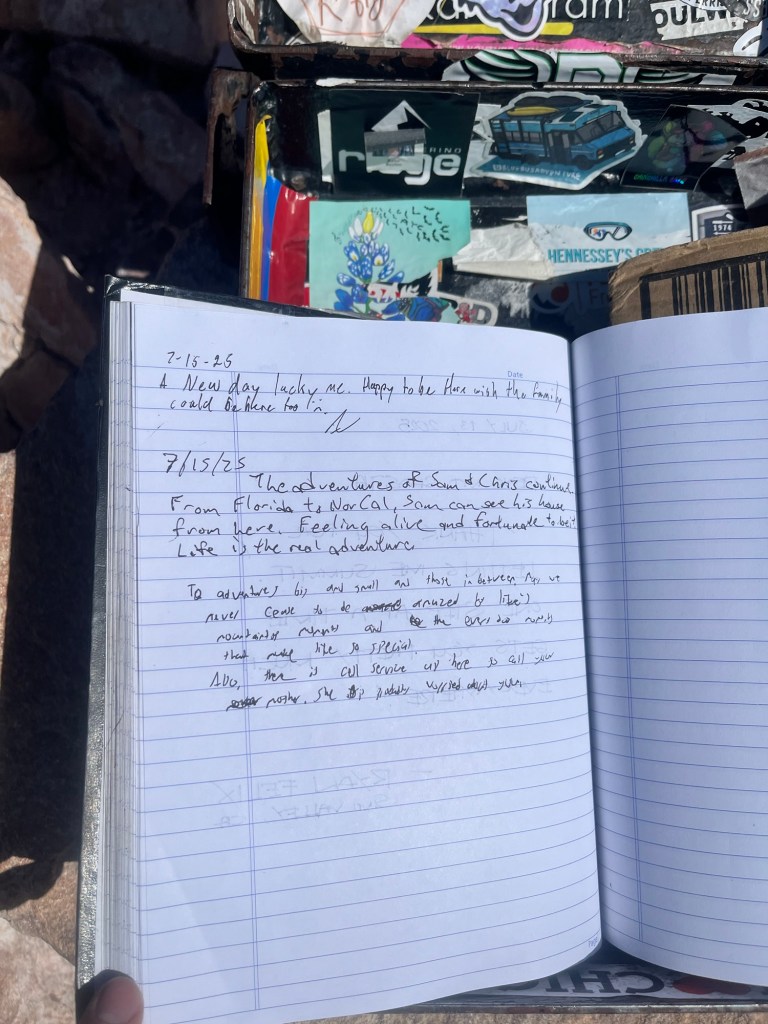 ram
OULW
RINO
rage
HENNESSEY'S
1974
Date
7-15-25
A New day lucky me. Happy to be Here wish the family
could be here too
7/15/25
The adventures of Sam & Chris continue
From Florida to NorCal, Sam can see his house
from here. Feeling alive and fortunate to be it
Life is the real adventure
To adventures big and small and those in between may we
never cease to be amazed by life's
mountaintop moments and the every day moments
that make life so special.
Also, there is cell service up here so call your
mother. She is probably worried about you
RYAN FELIX
SUN VALLEY CA
CHIC